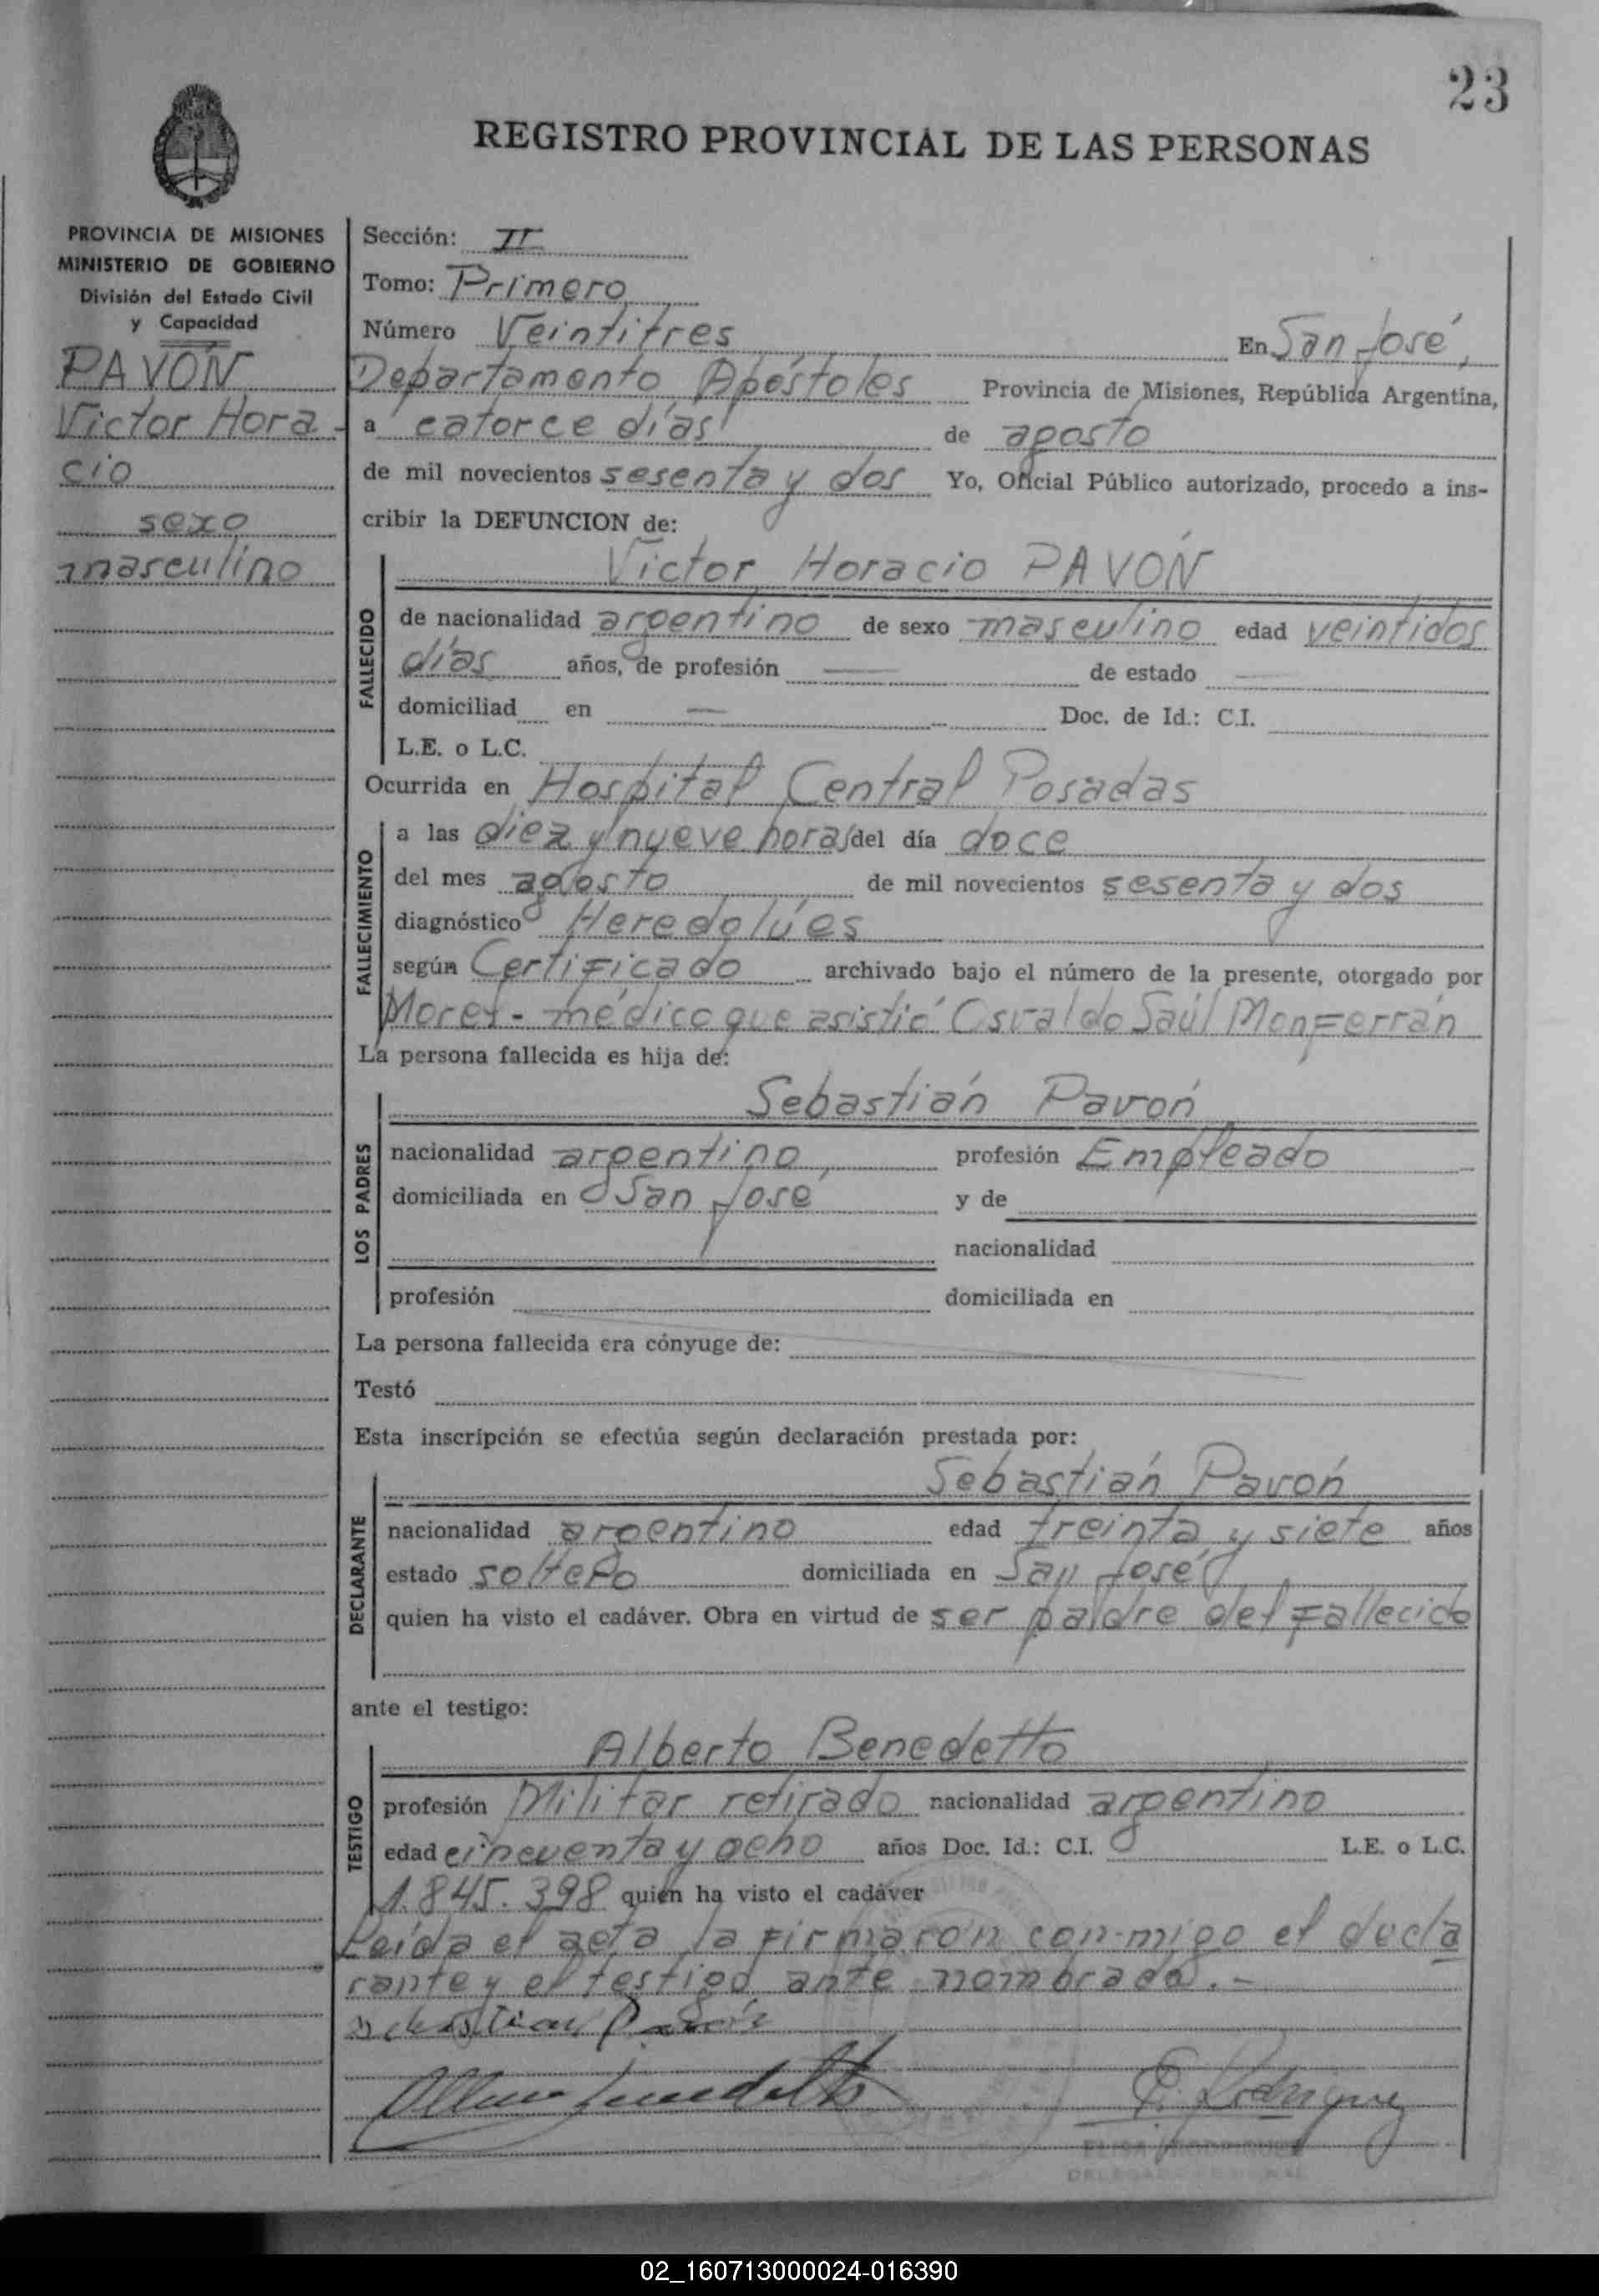 23
REGISTRO PROVINCIAL DE LAS PERSONAS
PROVINCIA DE MISIONES
MINISTERIO DE GOBIERNO
División del Estado Civil
y Capacidad
PAVÓN
Víctor Hora-
cio
sexo
masculino
Sección: II
Tomo: Primero
Número Veintitres En San José,
Departamento Apóstoles Provincia de Misiones, República Argentina,
a catorce días de agosto
de mil novecientos sesenta y dos Yo, Oficial Público autorizado, procedo a ins-
cribir la DEFUNCION de:
Víctor Horacio PAVÓN
FALLECIDO
de nacionalidad argentino de sexo masculino edad veintidos
días años, de profesión — de estado —
domiciliad en — Doc. de Id.: C.I.
L.E. o L.C.
Ocurrida en Hospital Central Posadas
FALLECIMIENTO
a las diez y nueve horas del día doce
del mes agosto de mil novecientos sesenta y dos
diagnóstico Heredolúes
según Certificado archivado bajo el número de la presente, otorgado por
- médico que asistió Osvaldo Saúl Monferrán
La persona fallecida es hija de:
LOS PADRES
Sebastián Pavón
nacionalidad argentino, profesión Empleado
domiciliada en San José y de
nacionalidad
profesión domiciliada en
La persona fallecida era cónyuge de:
Testó
Esta inscripción se efectúa según declaración prestada por:
DECLARANTE
Sebastián Pavón
nacionalidad argentino edad treinta y siete años
estado soltero domiciliada en San José
quien ha visto el cadáver. Obra en virtud de ser paldre del fallecido
ante el testigo:
TESTIGO
Alberto Benedetto
profesión Militar retirado nacionalidad argentino
edad cincuenta y ocho años Doc. Id.: C.I. L.E. o L.C.
1.845.398 quien ha visto el cadáver
Leída el acta la firmaron con-migo el decla
rante y el testigo ante nombrado.-
Sebastian Pavón
Benedetto
E. Rodriguez
02_160713000024-016390